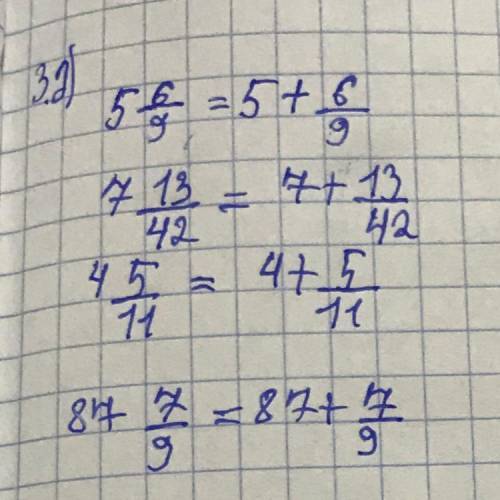 3.2)
5 6/9 = 5 + 6/9
7 13/42 = 7 + 13/42
4 5/11 = 4 + 5/11
87 7/9 = 87 + 7/9